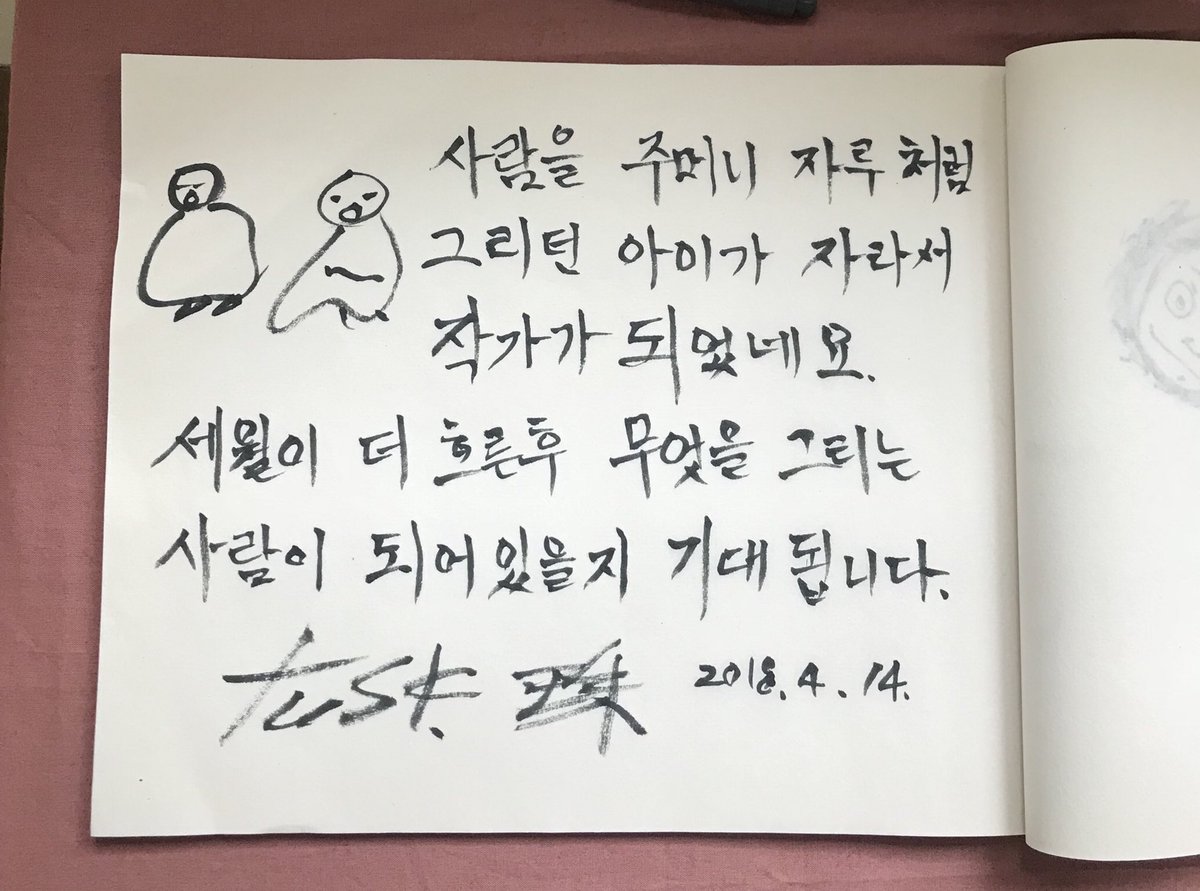 사람을 주머니 자루처럼
그리던 아이가 자라서
작가가 되었네요.
세월이 더 흐른후 무엇을 그리는
사람이 되어있을지 기대됩니다.
2018. 4. 14.